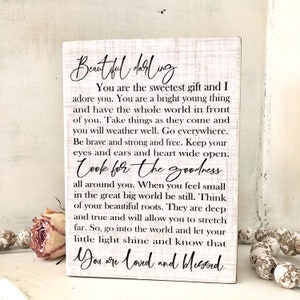 Beautiful darling
You are the sweetest gift and I
adore you. You are a bright young thing
and have the whole world in front
of you. Take things as they come and
you will weather well. Go everywhere.
Be brave and strong and free. Keep your
eyes and ears and heart wide open.
Look for the goodness
all around you. When you feel small
in the great big world be still. Think
of your beautiful roots. They are deep
and true and will allow you to stretch
far. So, go into the world and let your
little light shine and know that
You are loved and blessed